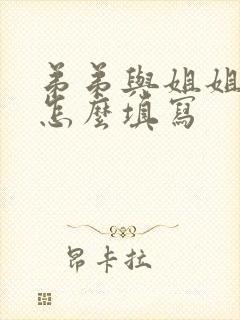 弟弟與姐姐
怎麼填寫
昂卡拉